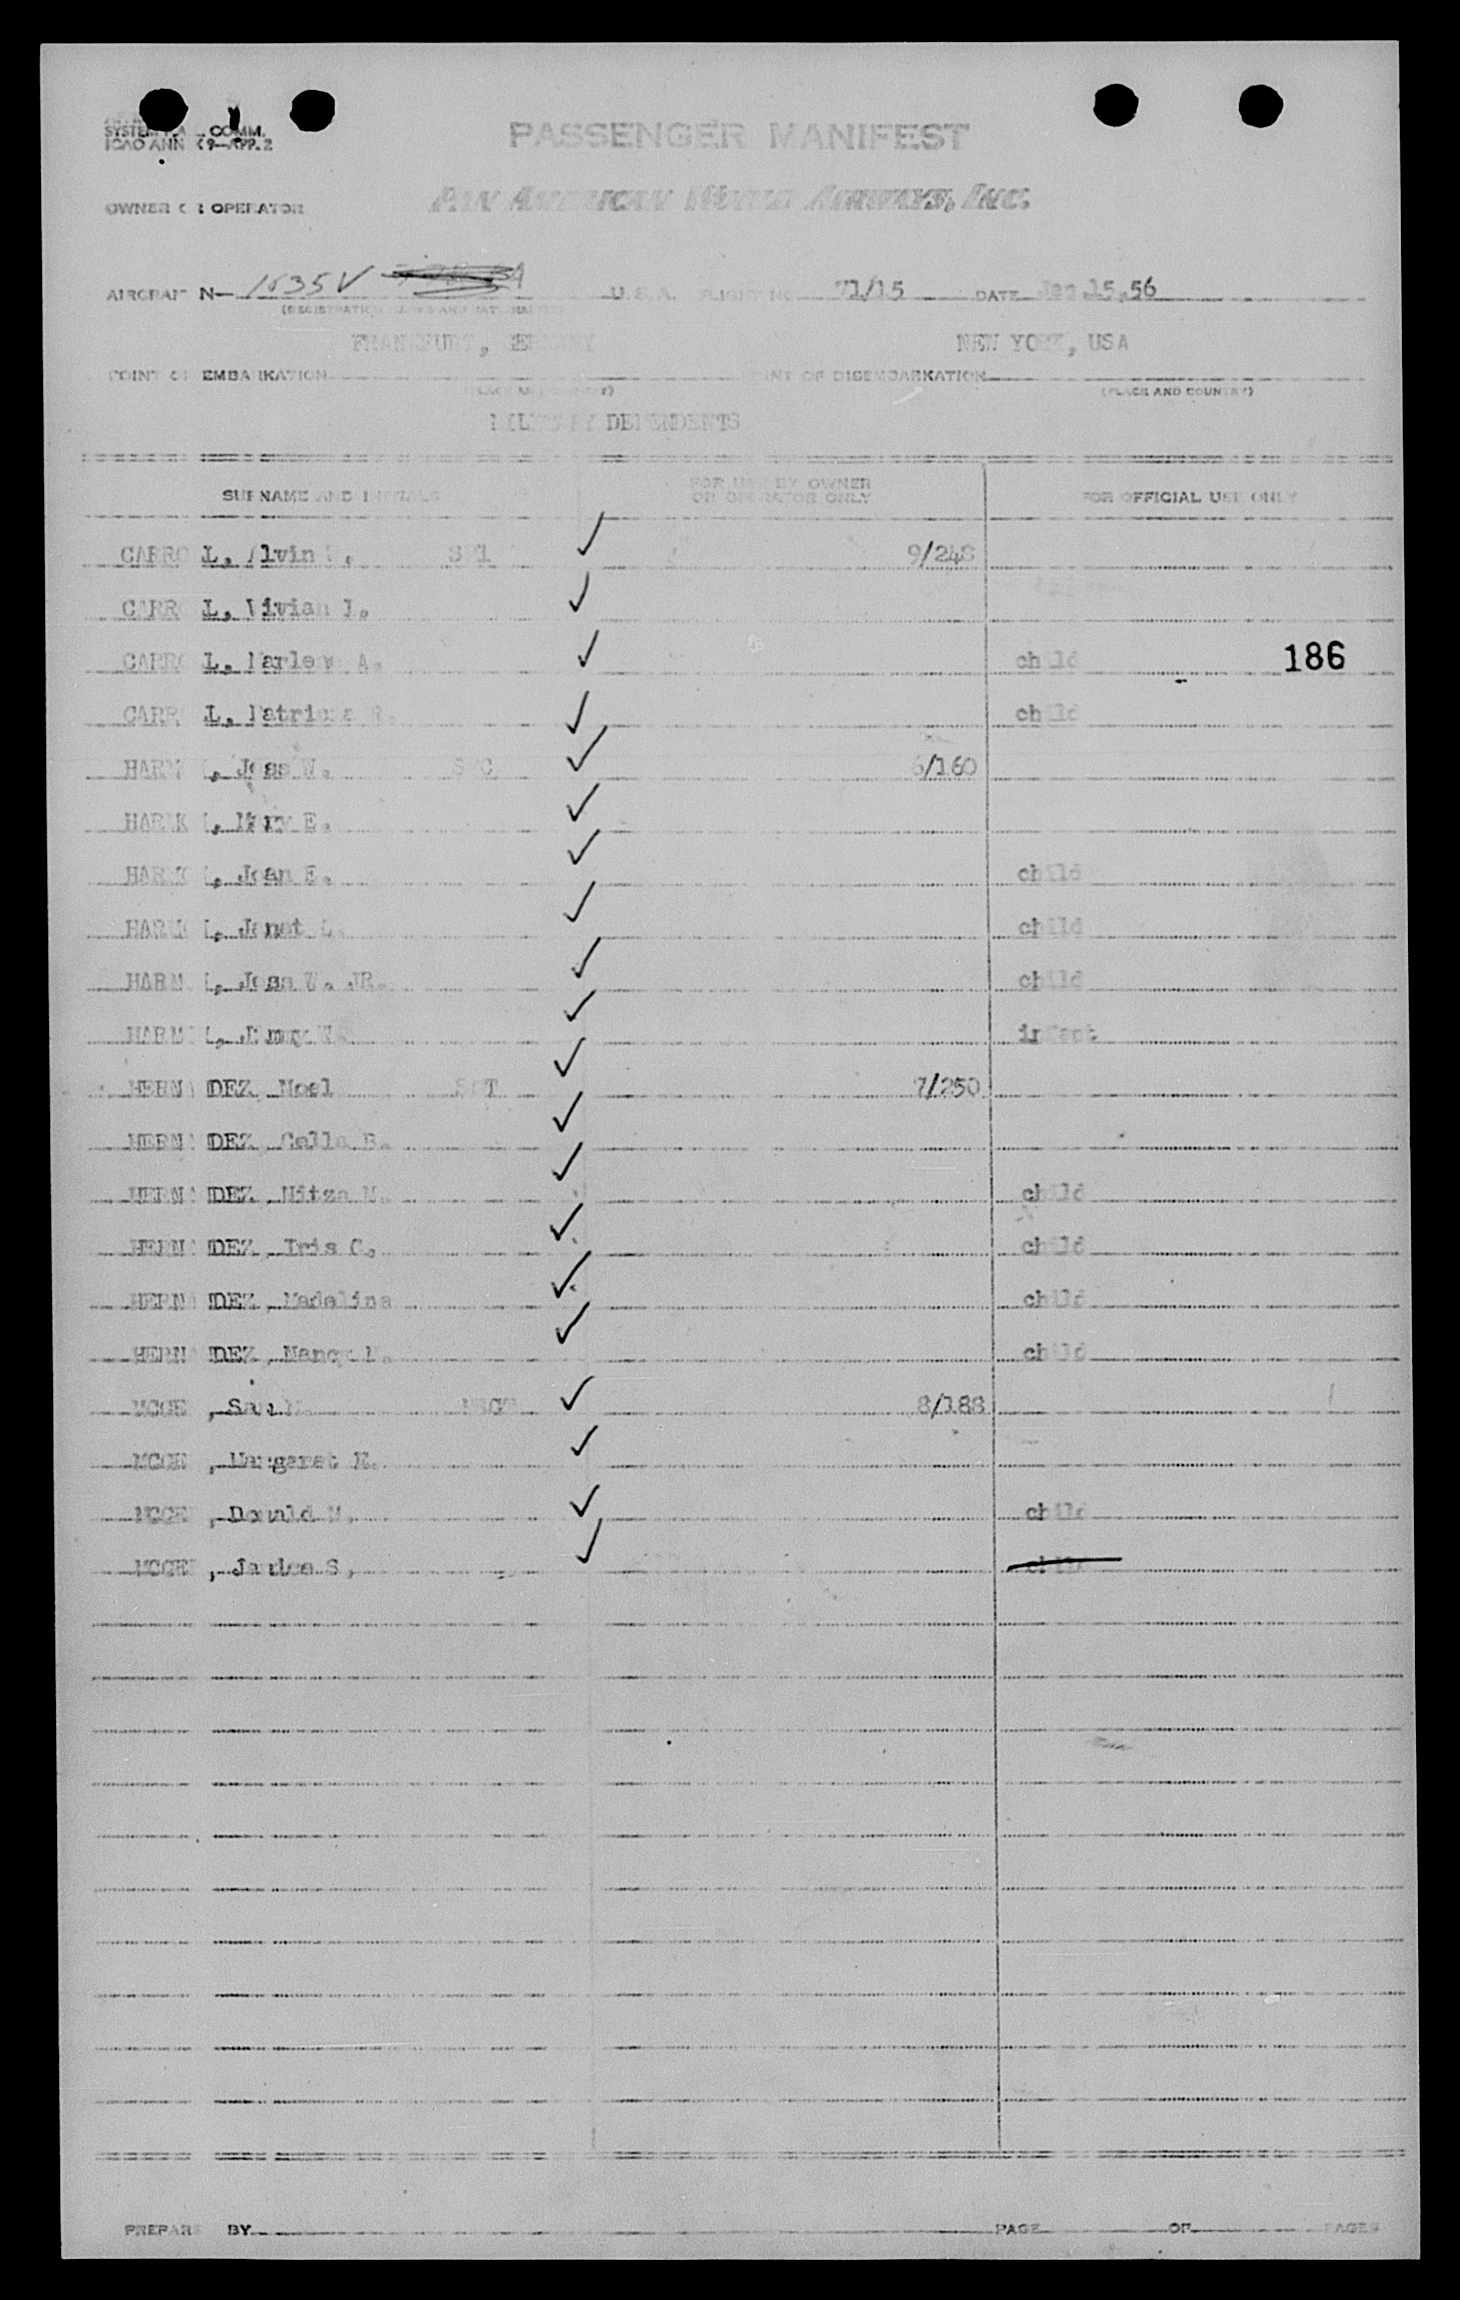 SYSTEM COMM.
ICAO ANN 9—APP. 2
PASSENGER MANIFEST
OWNER OR OPERATOR PAN AMERICAN WORLD AIRWAYS, INC.
AIRCRAFT N— 1035V U.S.A. FLIGHT NO. 71/15 DATE Jan 15, 56
(REGISTRATION MARKS AND NATIONALITY)
FRANKFURT, GERMANY NEW YORK, USA
POINT OF EMBARKATION POINT OF DISEMBARKATION
(PLACE AND COUNTRY) (PLACE AND COUNTRY)
MILITARY DEPENDENTS
SURNAME AND INITIALS FOR USE BY OWNER OR OPERATOR ONLY FOR OFFICIAL USE ONLY
CARROLL, Alvin 9/248
CARROLL, Vivian
CARROLL, A. child 186
CARROLL, child
HARMON, Jess W. SFC 6/160
HARMON, Mary E.
HARMON, Joan E. child
HARMON, Janet L. child
HARMON, Jess W. JR. child
HARMON, infant
HERNANDEZ, Noel SGT 7/250
HERNANDEZ, Celia B.
HERNANDEZ, Mitza M. child
HERNANDEZ, Iris C. child
HERNANDEZ, Madelina child
HERNANDEZ, Nancy child
MCGEE, Sam 8/188
MCGEE, Margaret
MCGEE, Donald M. child
MCGEE, Janice S. child
PREPARED BY PAGE OF PAGES